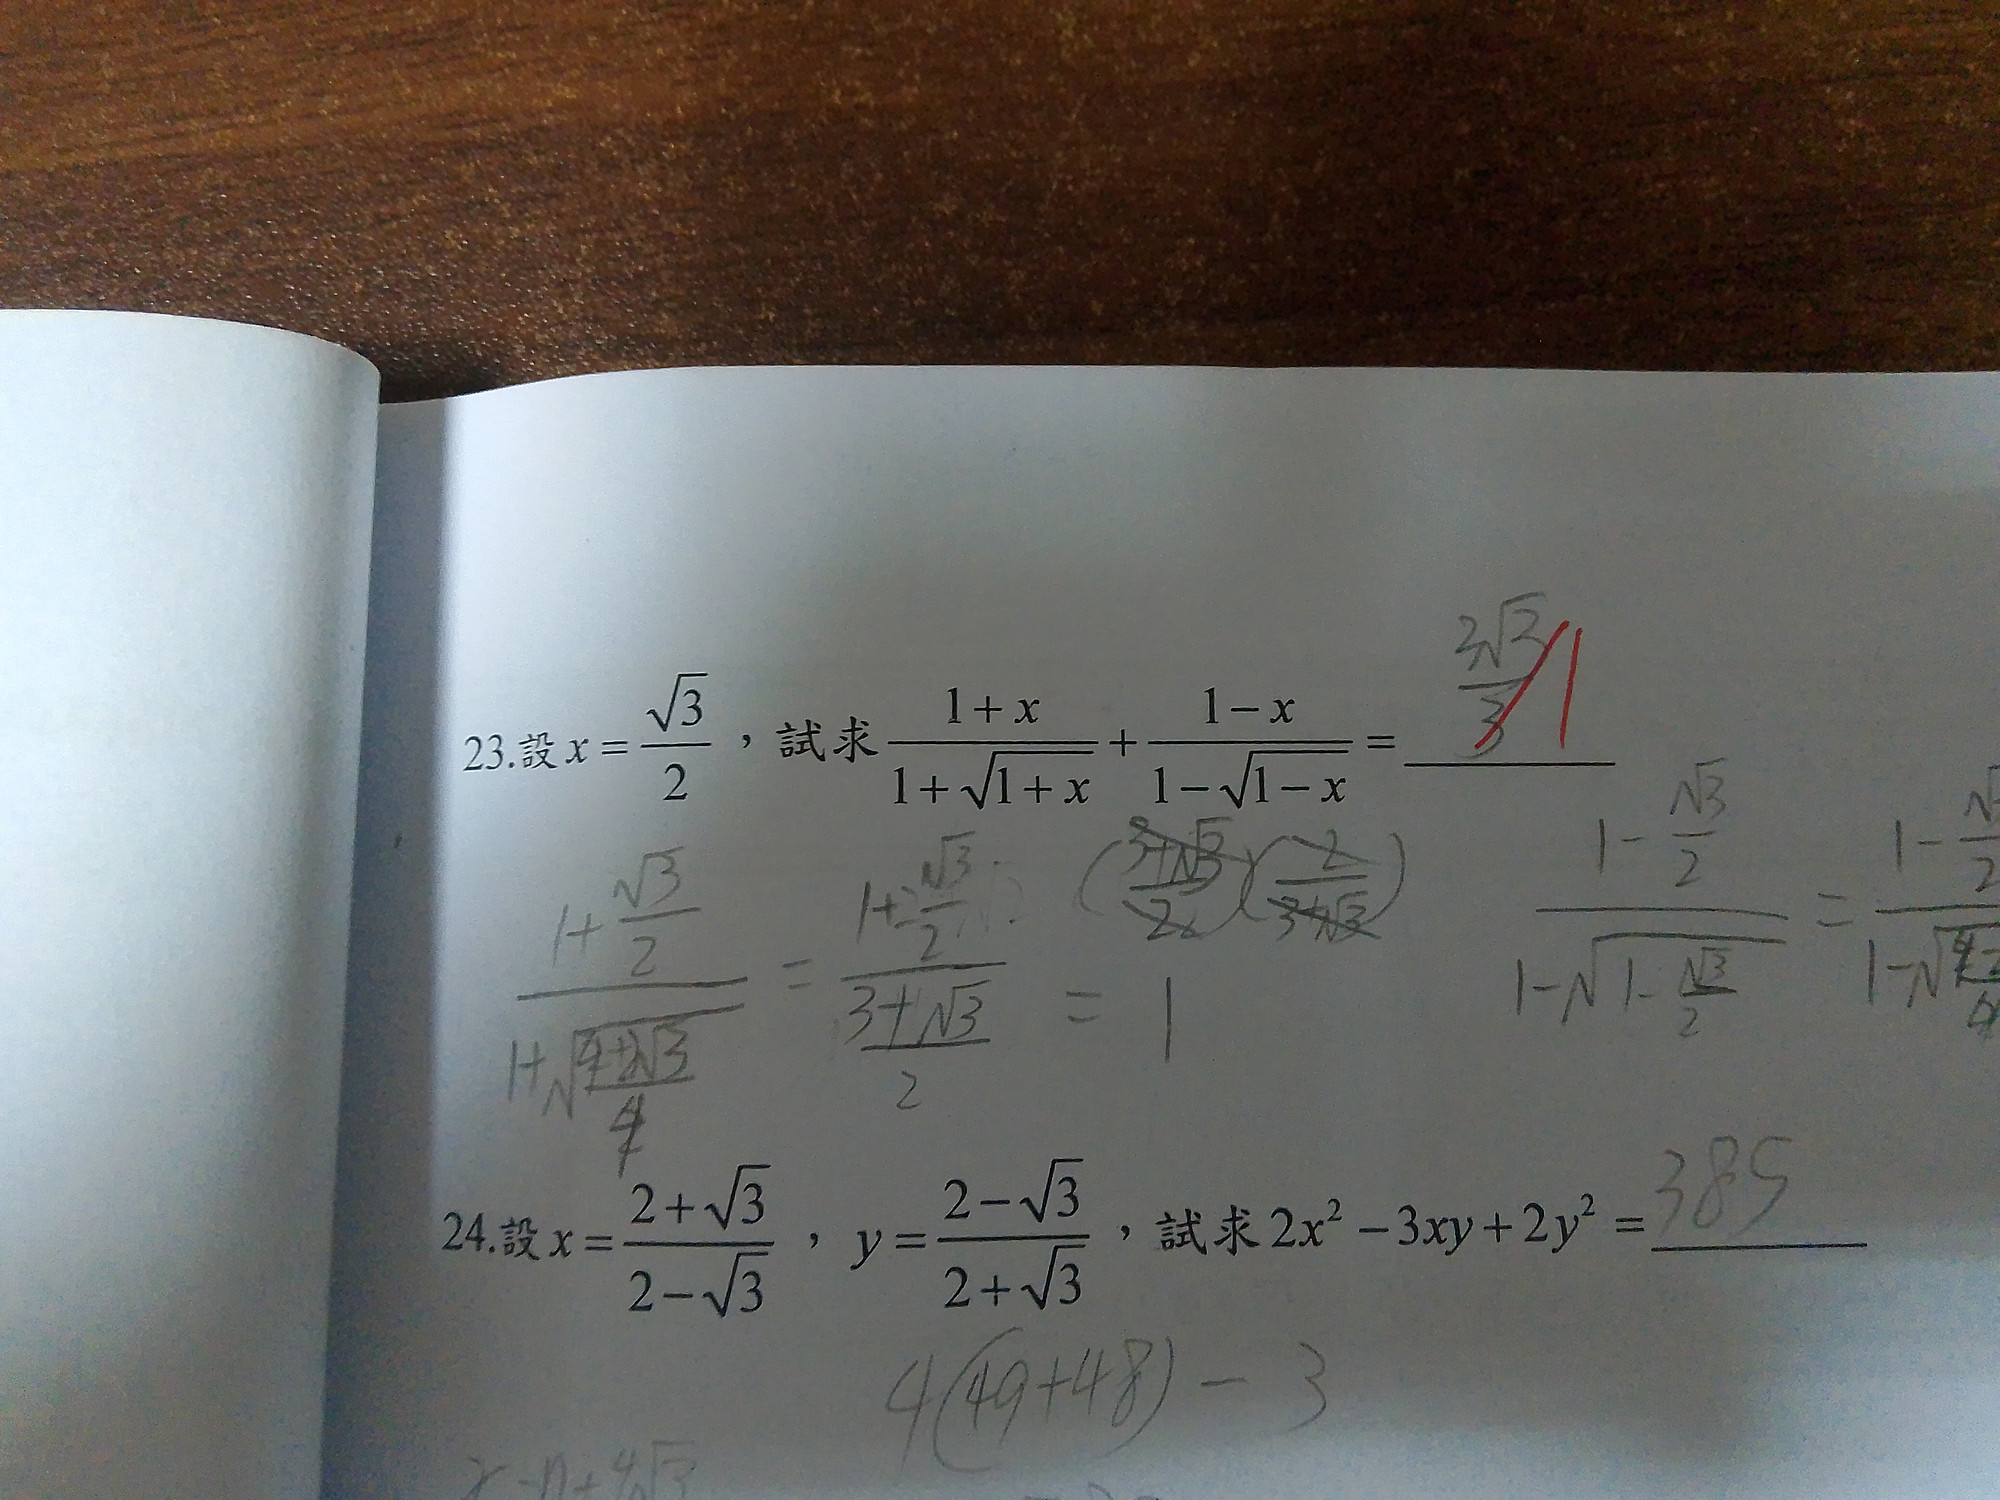 23.設 x = √3/2 ，試求 (1+x)/(1+√(1+x)) + (1−x)/(1−√(1−x)) = 2√3/3 1
(1+√3/2)/(1+√((4+2√3)/4)) = (1+√3/2)/((3+√3)/2) = 1
((3+√3)/2)(2/(3+√3))
(1−√3/2)/(1−√(1−√3/2)) =
24.設 x = (2+√3)/(2−√3) ， y = (2−√3)/(2+√3) ，試求 2x² − 3xy + 2y² = 385
4(49+48) − 3